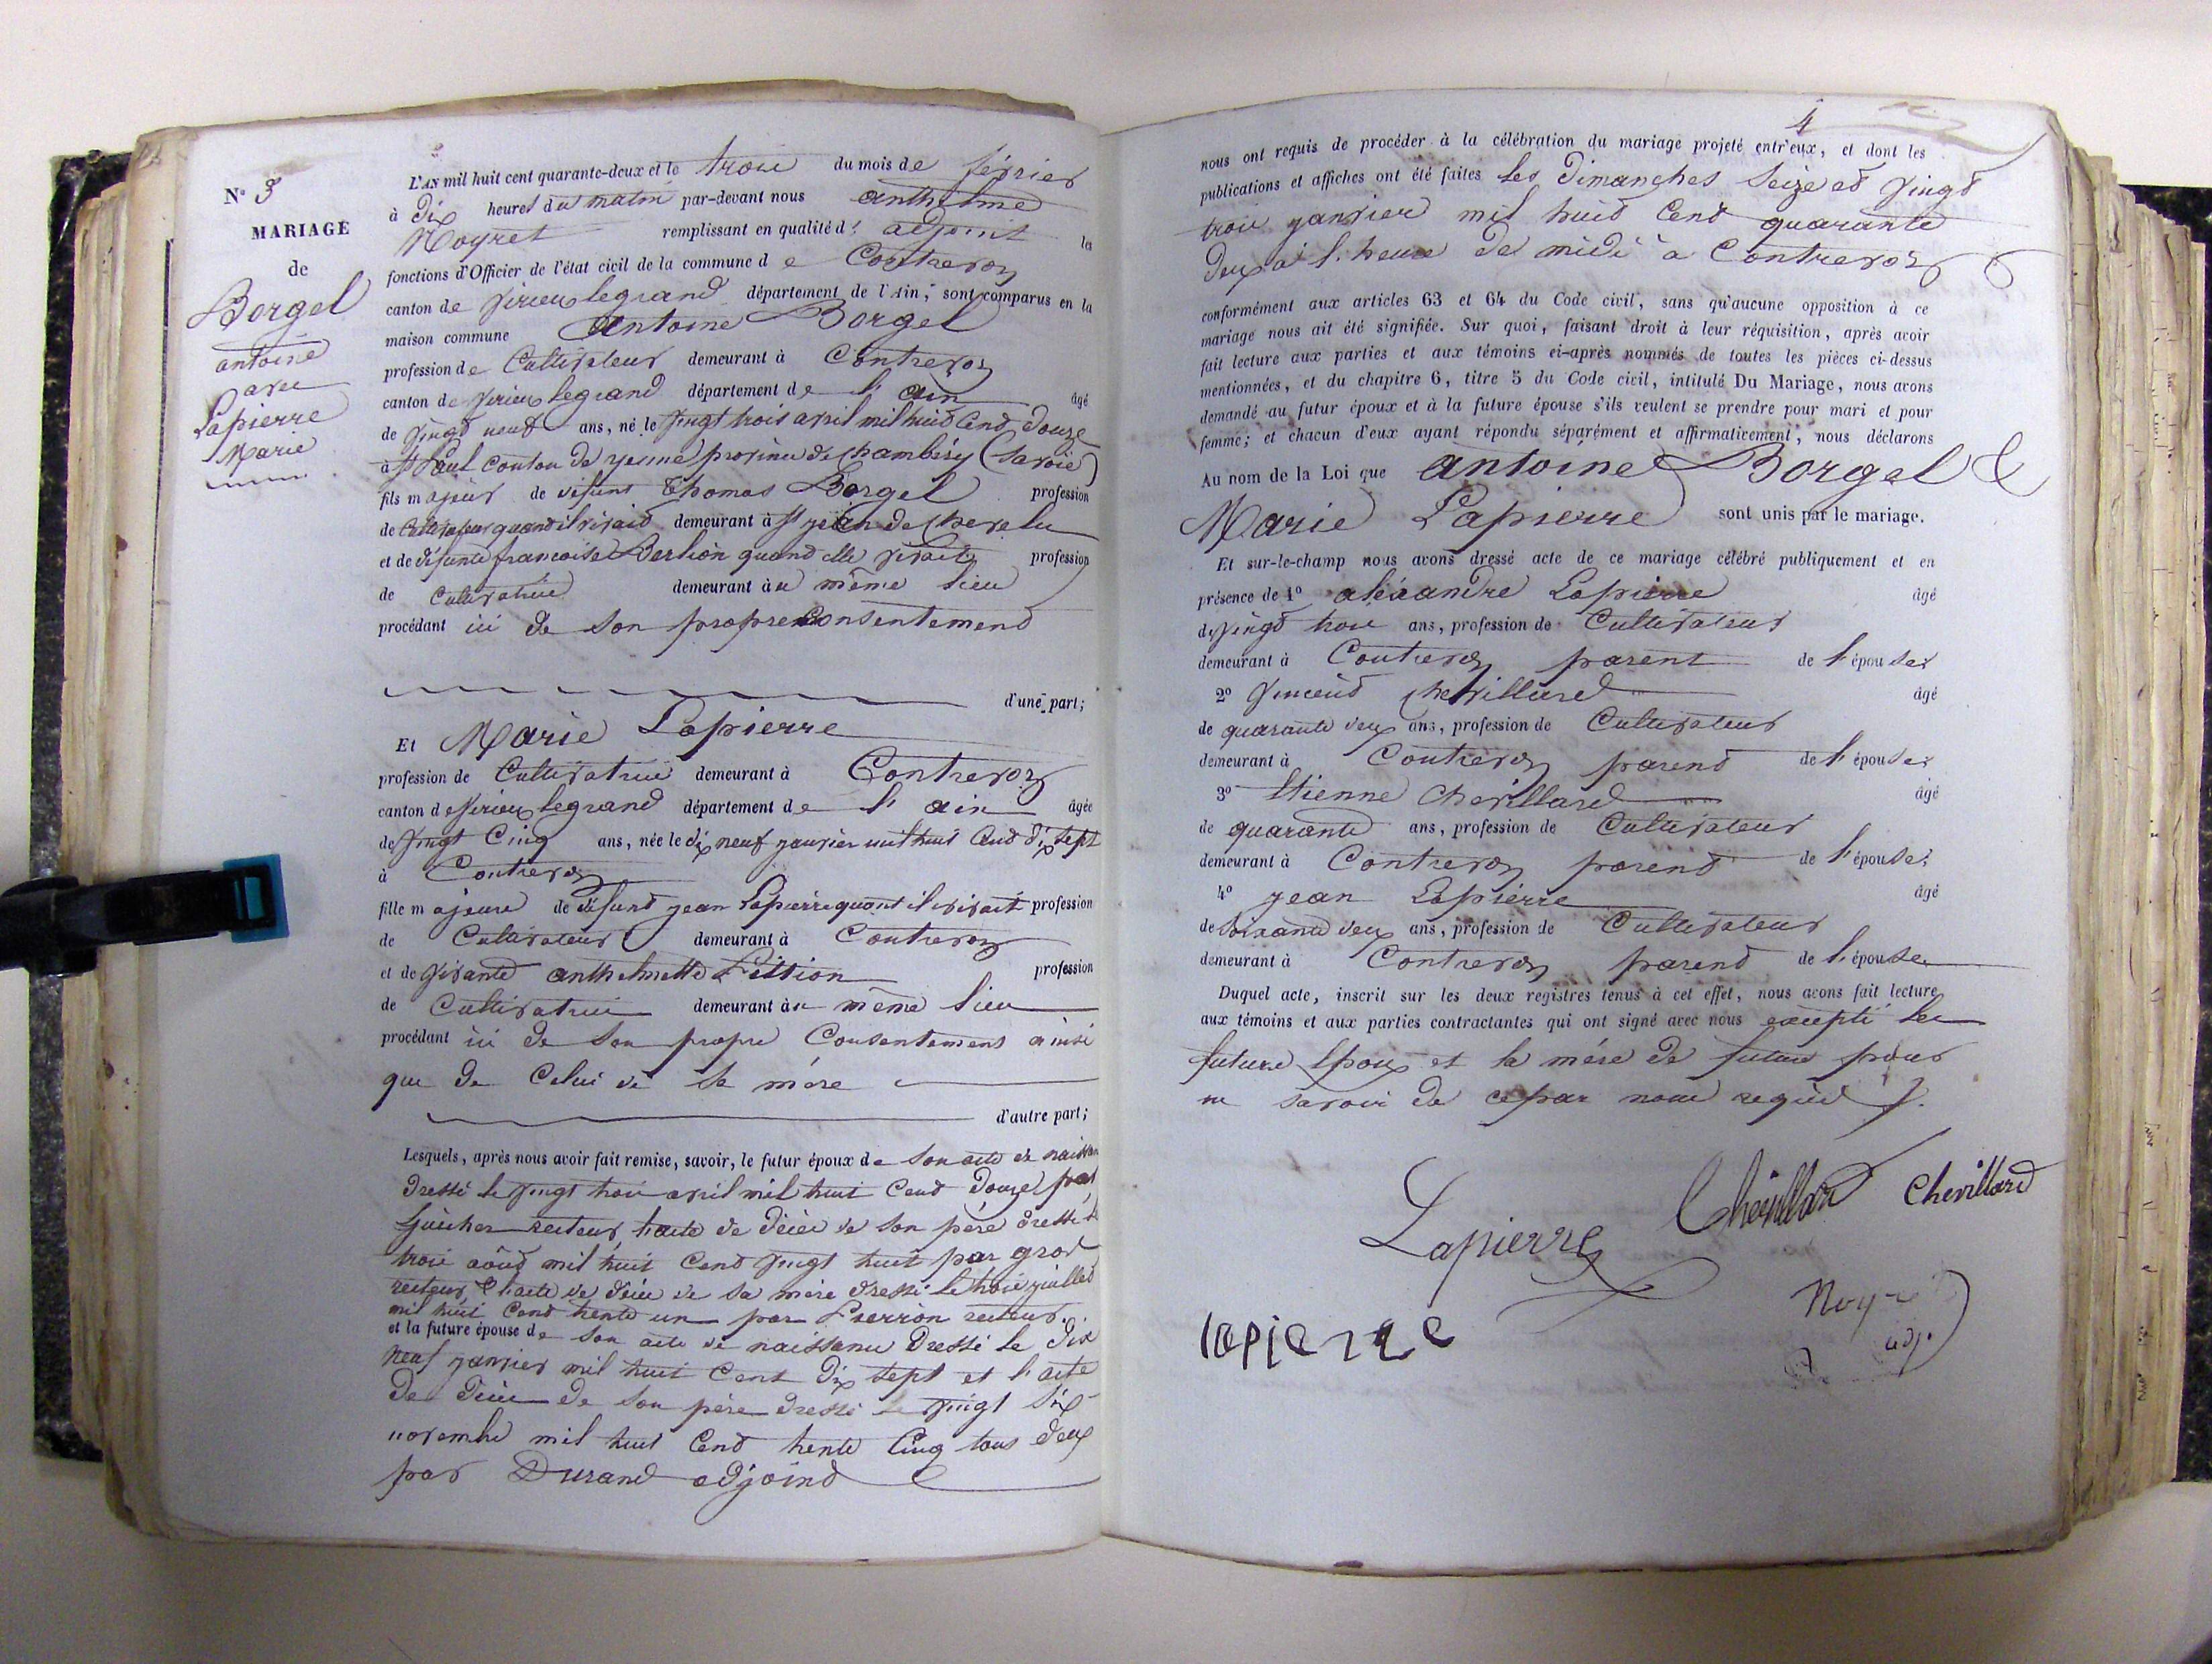 N° 3
MARIAGE
de
Borgel
antoine
avec
Lapierre
Marie
L'AN mil huit cent quarante-deux et le trois du mois de février
à Dix heures du matin par-devant nous anthelme
Noyret remplissant en qualité d' adjoint les
fonctions d'Officier de l'état civil de la commune de Contrevoz
canton de virieu legrand département de l'Ain, sont comparus en la
maison commune Antoine Borgel
profession de Cultivateur demeurant à Contrevoz
canton de virieu legrand département de l'ain âgé
de vingt neuf ans, né le vingt trois avril mil huit Cend Douze
à St Paul conton de yenne province de chambéry (savoie)
fils majeur de défunt Thomas Borgel profession
de Cultivateur quand il vivait demeurant à St jean de chevelu
et de défunte francoise Berlion quand elle vivait profession
de Cultivatrice demeurant au même lieu
procédant ici de son propre Consentement
d'une part;
Et Marie Lapierre
profession de Cultivatrice demeurant à Contrevoz
canton de virieu legrand département de l'ain âgée
de vingt Cinq ans, née le dix neuf janvier mil huit Cend dix sept
à Contrevoz
fille majeure de défund jean Lapierre quant il vivait profession
de Cultivateur demeurant à Contrevoz
et de vivante anthelmette Pittion profession
de Cultivatrice demeurant au même lieu
procédant ici de son propre Consentement ainsi
que de Celui de sa mère
d'autre part;
Lesquels, après nous avoir fait remise, savoir, le futur époux de son acte de naissance
Dressé le vingt trois avril mil huit Cend Douze par
recteur, l'acte de décès de son père dressé le
trois août mil huit Cend vingt huit par gros
recteur & l'acte de décès de sa mère dressé le trois juillet
mil huit Cend trente un par Pierron recteur.
et la future épouse de son acte de naissance Dressé le Dix
neuf janvier mil huit Cent Dix sept et l'acte
De Décès de son père dressé le vingt six
novembre mil huit Cend trente Cinq tous deux
par Durand adjoind
4
nous ont requis de procéder à la célébration du mariage projeté entr'eux, et dont les
publications et affiches ont été faites les Dimanches seize ed vingd
trois janvier mil huid Cend quarante
Deux à l'heure de midi à Contrevoz
conformément aux articles 63 et 64 du Code civil, sans qu'aucune opposition à ce
mariage nous ait été signifiée. Sur quoi, faisant droit à leur réquisition, après avoir
fait lecture aux parties et aux témoins ci-après nommés de toutes les pièces ci-dessus
mentionnées, et du chapitre 6, titre 5 du Code civil, intitulé Du Mariage, nous avons
demandé au futur époux et à la future épouse s'ils veulent se prendre pour mari et pour
femme; et chacun d'eux ayant répondu séparément et affirmativement, nous déclarons
Au nom de la Loi que antoine Borgel &
Marie Lapierre sont unis par le mariage.
Et sur-le-champ nous avons dressé acte de ce mariage célébré publiquement et en
présence de 1° aléxandre Lapierre âgé
de vingd trois ans, profession de Cultivateur
demeurant à Contrevoz parent de l'épouse
2° Vincend chevillard âgé
de quarante deux ans, profession de Cultivateur
demeurant à Contrevoz parend de l'épouse
3° Etienne Chevillard âgé
de quarante ans, profession de Cultivateur
demeurant à Contrevoz parend de l'épouse
4° jean Lapierre âgé
de soixante deux ans, profession de Cultivateur
demeurant à Contrevoz parend de l'épouse
Duquel acte, inscrit sur les deux registres tenus à cet effet, nous avons fait lecture
aux témoins et aux parties contractantes qui ont signé avec nous excepté les
future Epoux et la mére de future pour
ne savoir de ce par nous requis
Lapierre Chevillard Chevillard
lapierre
Noyret
adj.